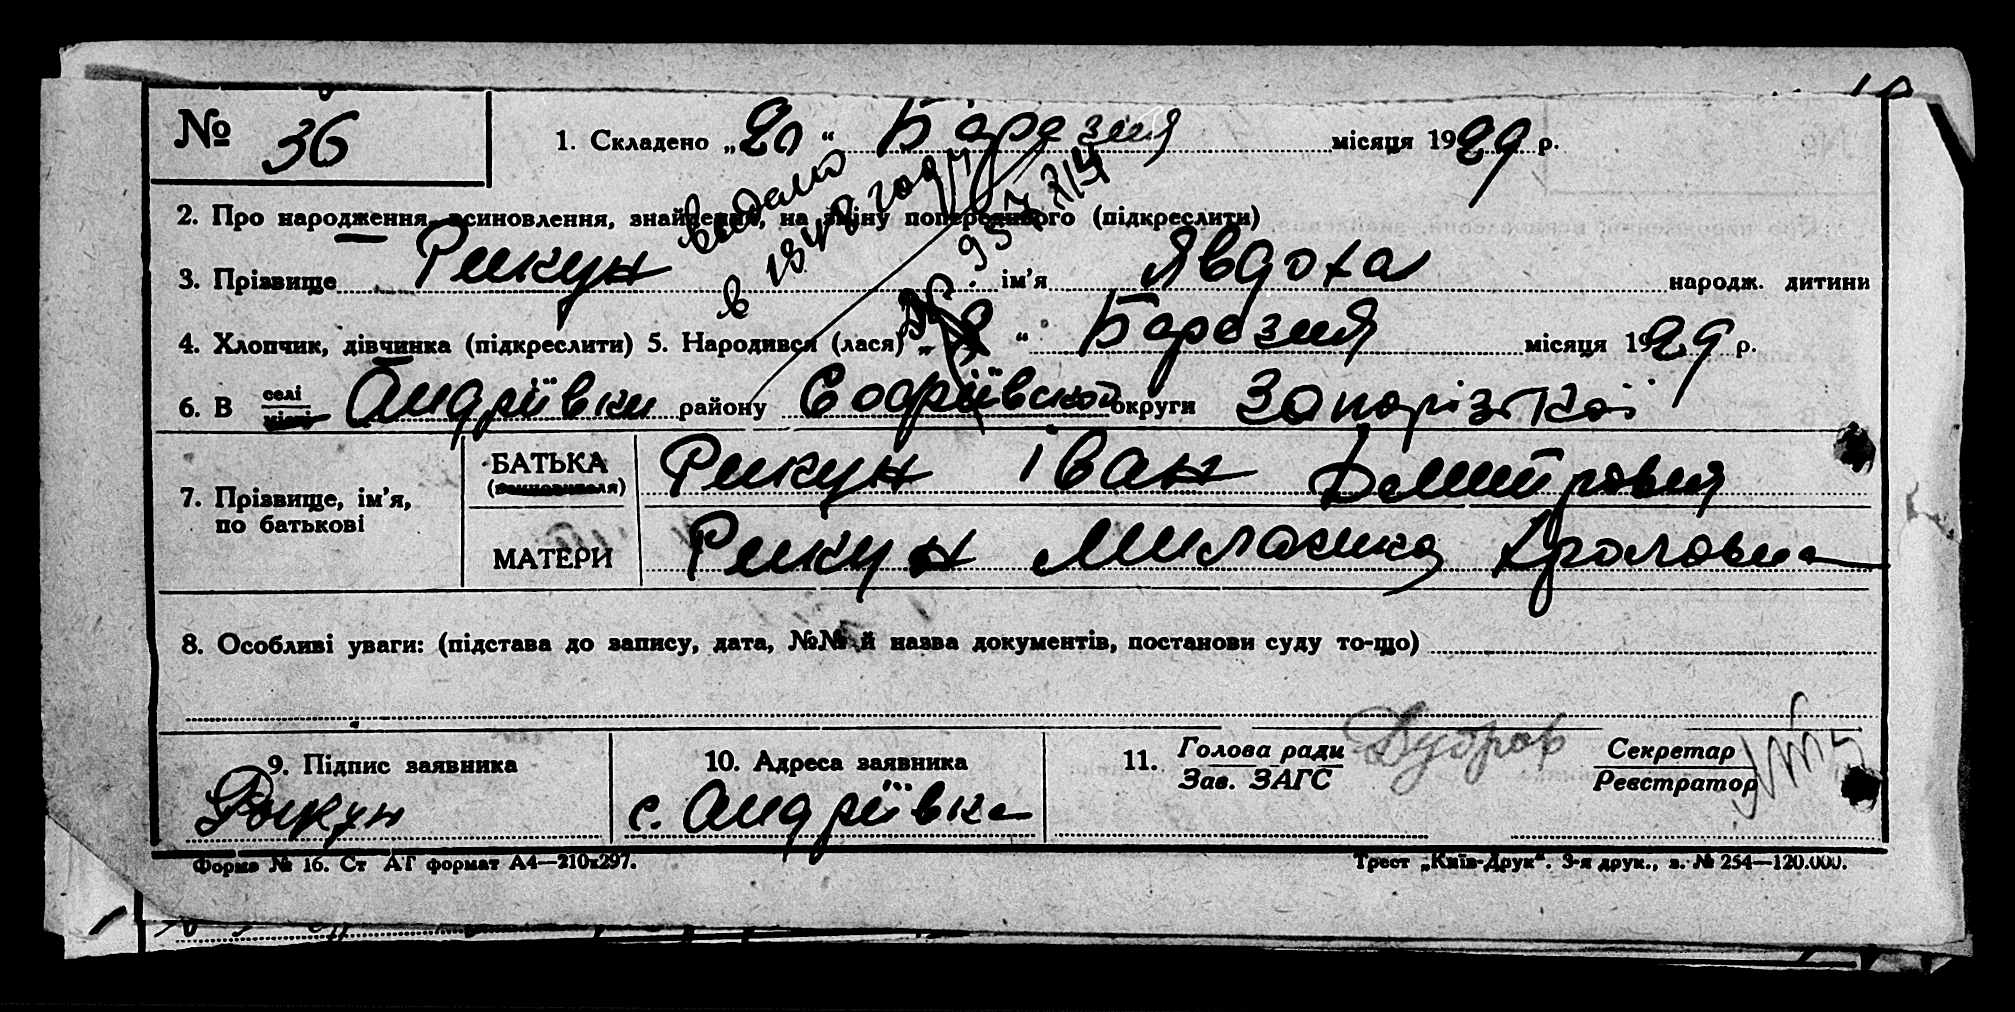 № 36
1. Складено „20“ Березня місяця 1929 р.
видано
в 1948 году
2. Про народження, всиновлення, знайдення, на зміну попереднього (підкреслити)
3. Прізвище Рикун ім’я Явдоха народж. дитини
4. Хлопчик, дівчинка (підкреслити) 5. Народився (лася) „ “ Березня місяця 1929 р.
6. В селі Андріївки району Софіївской округи Запорізткої
місті
7. Прізвище, ім’я, по батькові
БАТЬКА Рикун Іван Демитрович
МАТЕРИ Рикун
8. Особливі уваги: (підстава до запису, дата, №№ й назва документів, постанови суду то-що)
9. Підпис заявника
Рыкун
10. Адреса заявника
с. Андріївка
11. Голова ради
Зав. ЗАГС
Секретар
Реєстратор
Форма № 16. Ст АТ формат А4—210x297.
Трест „Київ-Друк“. 3-я друк., з. № 254—120.000.